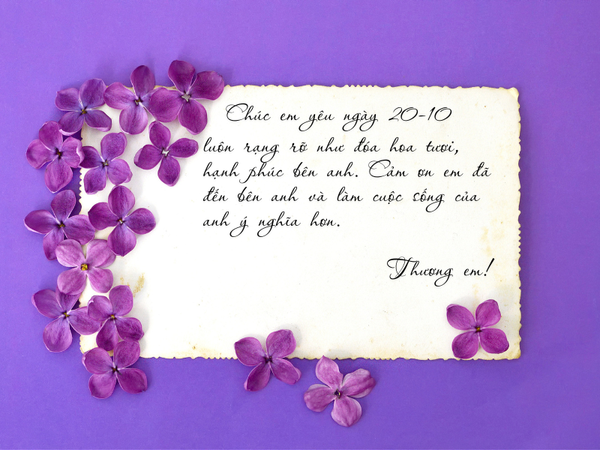 Chúc em yêu ngày 20-10
luôn rạng rỡ như đóa hoa tươi,
hạnh phúc bên anh. Cảm ơn em đã
đến bên anh và làm cuộc sống của
anh ý nghĩa hơn.
Thương em!